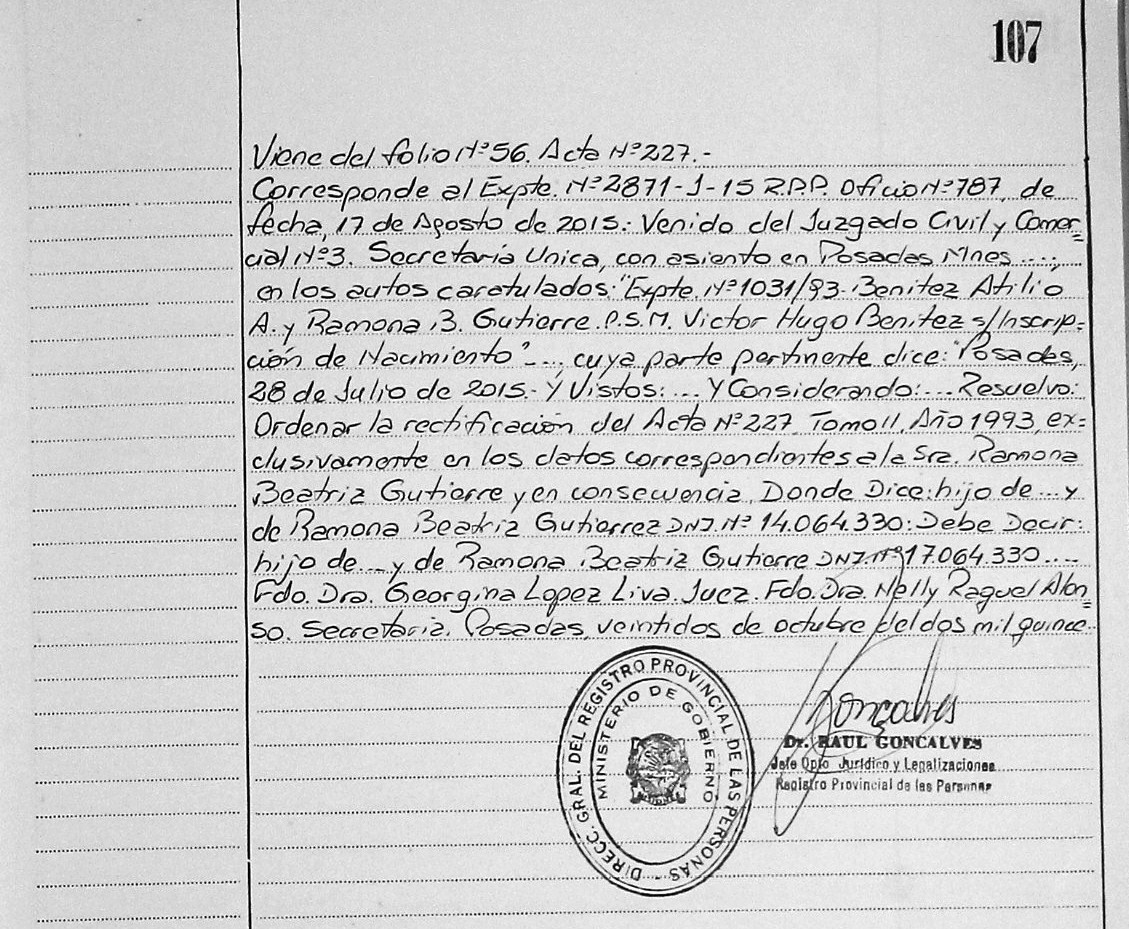 107
Viene del folio Nº56. Acta Nº227.-
Corresponde al Expte. Nº2871-J-15 R.P.P. Oficio Nº787, de
fecha, 17 de Agosto de 2015: Venido del Juzgado Civil y Comer=
cial Nº3. Secretaría Unica, con asiento en Posadas Mnes ....,
en los autos caratulados: "Expte. Nº1031/93. Benitez Atilio
A. y Ramona B. Gutierre. P.S.M. Victor Hugo Benitez s/Inscrip=
ción de Nacimiento" ..., cuya parte pertinente dice: "Posadas,
28 de Julio de 2015.- Y Vistos: ... Y Considerando: ... Resuelvo:
Ordenar la rectificación del Acta Nº227, Tomo II, Año 1993, ex=
clusivamente en los datos correspondientes a la Sra. Ramona
Beatriz Gutierre y en consecuencia, Donde Dice: hijo de ... y
de Ramona Beatriz Gutierrez DNI. Nº 14.064.330: Debe Decir:
hijo de ... y de Ramona Beatriz Gutierre DNI. Nº17.064.330 ....
Fdo. Dra. Georgina Lopez Liva. Juez. Fdo. Dra. Nelly Raquel Alon=
so. Secretaria. Posadas, veintidos de octubre del dos mil quince.
DIRECC. GRAL. DEL REGISTRO PROVINCIAL DE LAS PERSONAS
MINISTERIO DE GOBIERNO
Goncalves
Dr. RAUL GONCALVES
Jefe Dpto Jurídico y Legalizaciones
Registro Provincial de las Personas